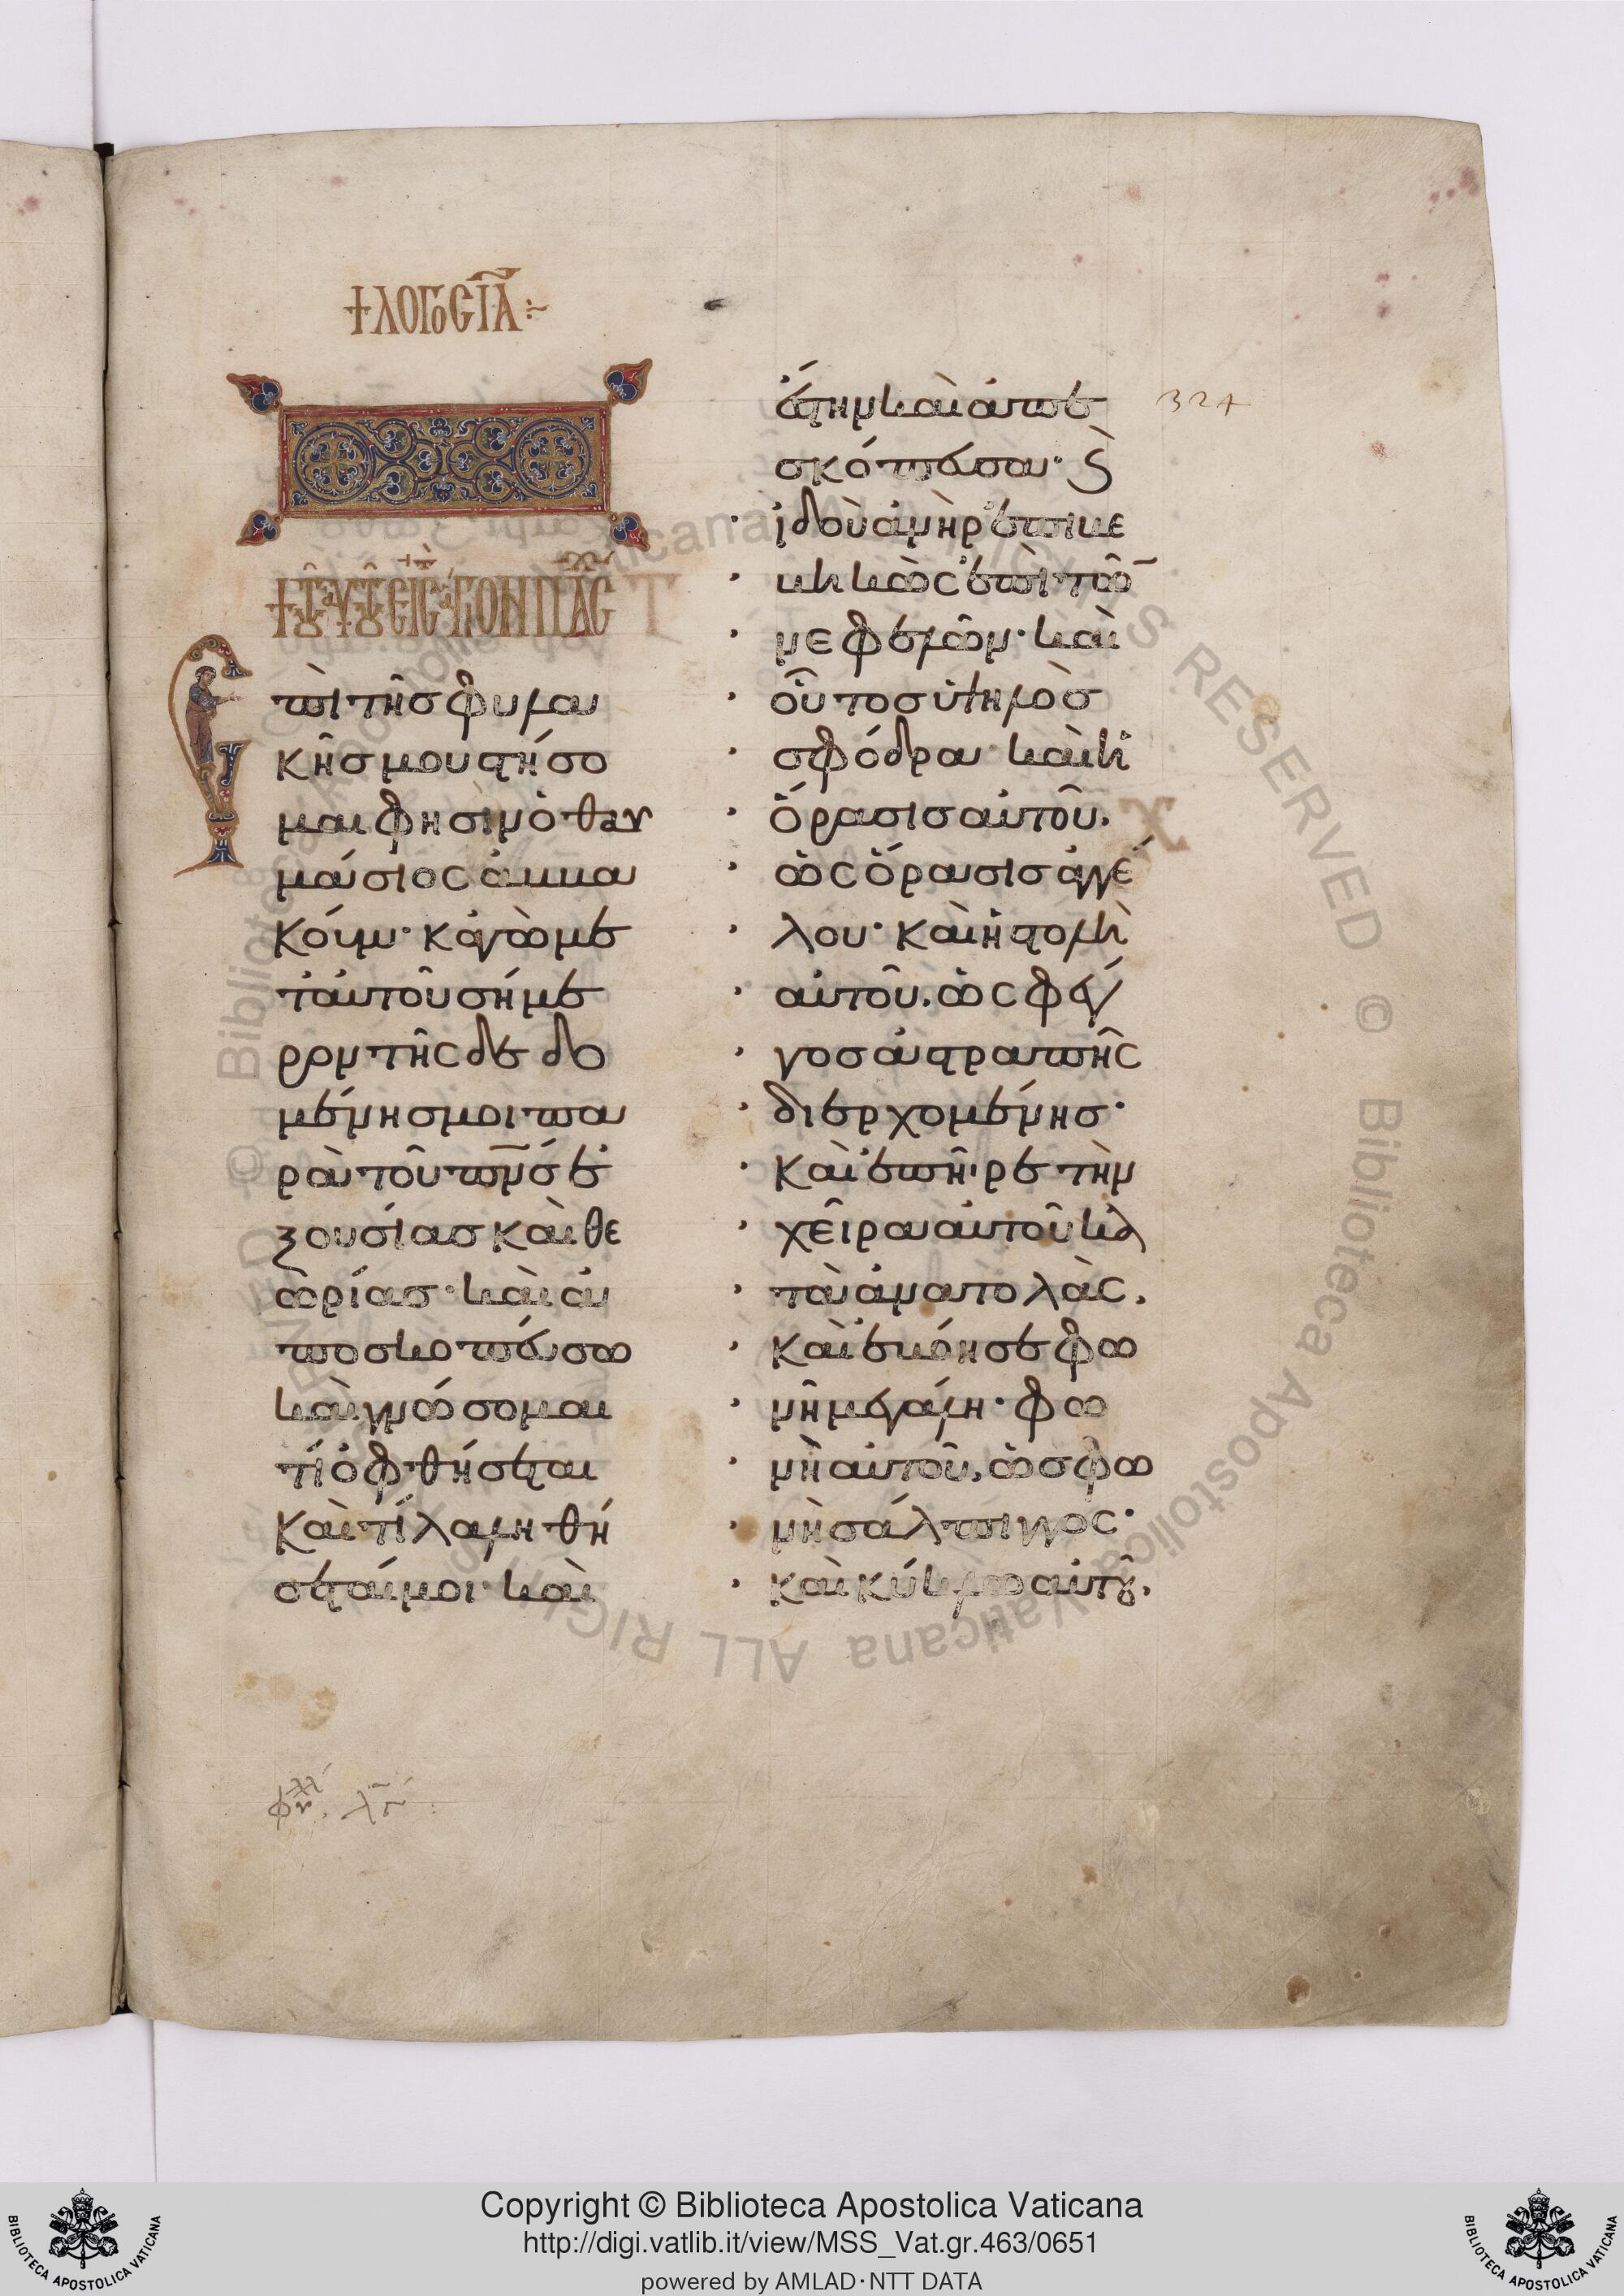 + ΛΟΓΟϹ ΙΑ :~
+ Τοῦ αὐτοῦ εἰς τὸ ἅγιον πάσχα
πὶ τῆς φυλα
κῆς μου στήσο
μαι φησὶν ὁ θαυ
μάσιος ἀμμα
κούμ· κἀγὼ με
τ' αὐτοῦ σήμε
ρον τῆς δεδο
μένης μοι πα
ρὰ τοῦ πν̅ς ἐ
ξουσίας καὶ θε
ωρίας· καὶ ἀ
ποσκοπεύσω
καὶ γνώσομαι
τί ὀφθήσεται
καὶ τί λαληθή
σεταί μοι· καὶ
ἔστην καὶ ἀπε
σκόπευσα· καὶ
ἰδοὺ ἀνὴρ ἐπιβε
βηκὼς ἐπὶ τῶ̅
νεφελῶν· καὶ
οὗτος ὑψηλὸς
σφόδρα· καὶ ἡ
ὅρασις αὐτοῦ.
ὡς ὅρασις ἀγγέ
λου· καὶ ἡ στολὴ
αὐτοῦ. ὡς φέγ
γος ἀστραπῆς
διερχομένης·
καὶ ἐπῆρε τὴν
χεῖρα αὐτοῦ κα
τὰ ἀνατολάς.
καὶ ἐβόησε φω
νῇ μεγάλῃ· φω
νὴ αὐτοῦ, ὡς φω
νὴ σάλπιγγος·
καὶ κύκλῳ αὐτοῦ.
324
Copyright © Biblioteca Apostolica Vaticana
http://digi.vatlib.it/view/MSS_Vat.gr.463/0651
powered by AMLAD·NTT DATA
BIBLIOTECA APOSTOLICA VATICANA
BIBLIOTECA APOSTOLICA VATICANA